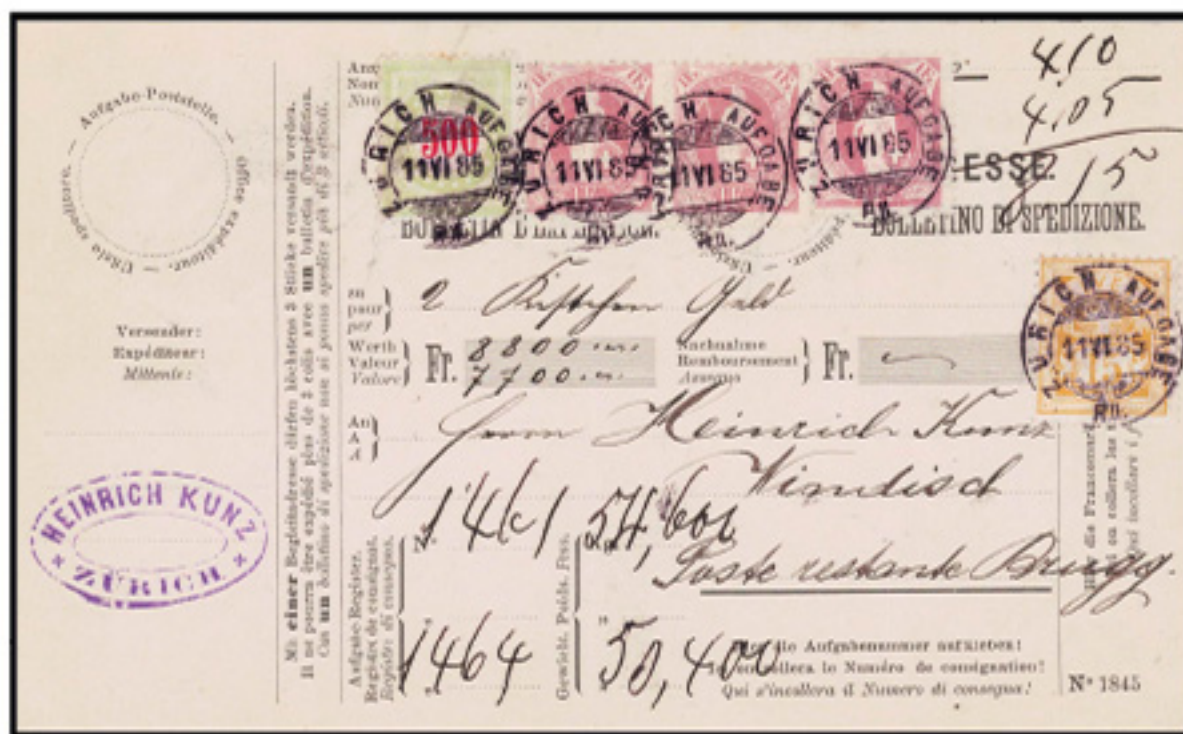 Aufgabe-Poststelle. — Office expéditeur. — Ufficio speditore.
Versender:
Expéditeur:
Mittente:
HEINRICH KUNZ
ZÜRICH
Mit einer Begleitadresse dürfen höchstens 3 Stücke versandt werden.
Il ne pourra être expédié plus de 3 colis avec un bulletin d'expédition.
Con un bollettino di spedizione non si ponno spedire più di 3 articoli.
500
ZÜRICH AUFGABE
11 VI 85
ZÜRICH AUFGABE
11 VI 85
ZÜRICH AUFGABE
11 VI 85
ZÜRICH AUFGABE
11 VI 85
4.10
4.05
8 15
ESSE.
BOLLETTINO DI SPEDIZIONE.
zu
pour
per
2 Kistchen Geld
Werth
Valeur
Valore
Fr. 8800
7700
Nachnahme
Remboursement
Assegno
Fr.
ZÜRICH AUFGABE
11 VI 85
15
An
A
A
Herrn Heinrich Kunz
Windisch
Poste restante Brugg.
Aufgabe-Register.
Registre de consignat.
Registro di consegna.
Nº 1461
1464
Gewicht. Poids. Peso.
54,600
50,400
die Aufgabenummer aufkleben!
collera le Numéro de consignation!
Qui s'incollera il Numero di consegna!
Nº 1845